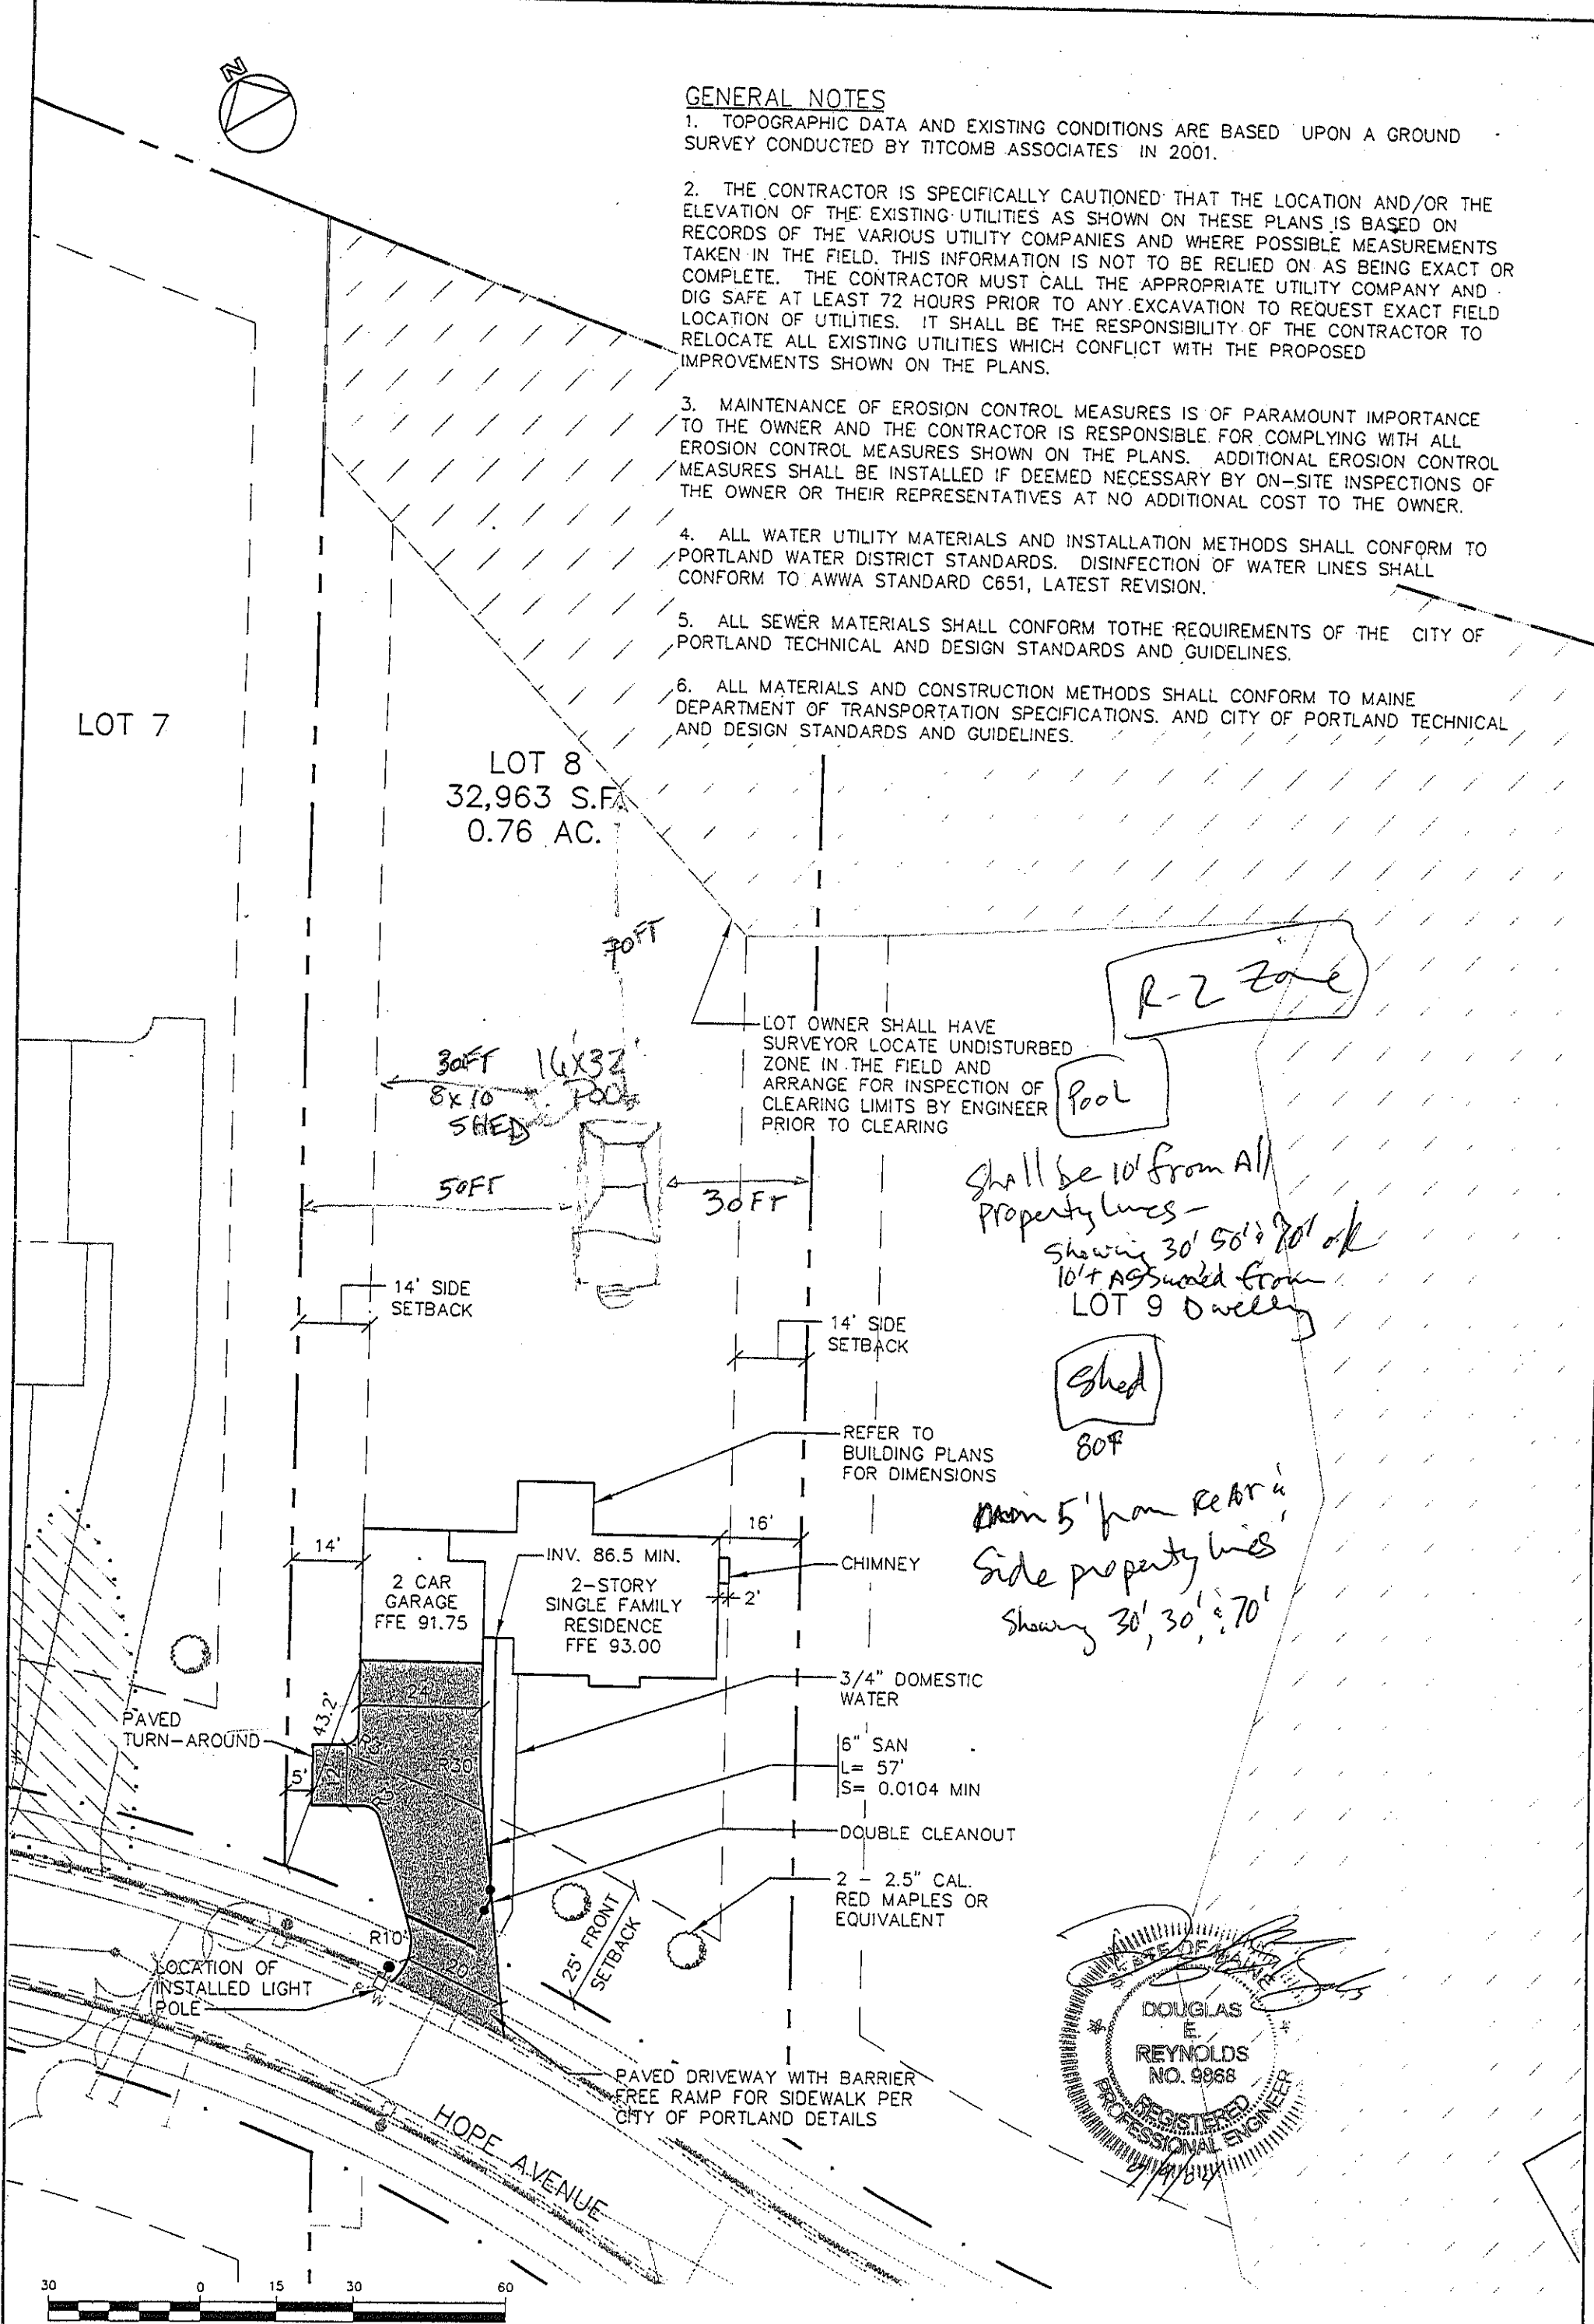 N
GENERAL NOTES
1. TOPOGRAPHIC DATA AND EXISTING CONDITIONS ARE BASED UPON A GROUND
SURVEY CONDUCTED BY TITCOMB ASSOCIATES IN 2001.
2. THE CONTRACTOR IS SPECIFICALLY CAUTIONED THAT THE LOCATION AND/OR THE
ELEVATION OF THE EXISTING UTILITIES AS SHOWN ON THESE PLANS IS BASED ON
RECORDS OF THE VARIOUS UTILITY COMPANIES AND WHERE POSSIBLE MEASUREMENTS
TAKEN IN THE FIELD. THIS INFORMATION IS NOT TO BE RELIED ON AS BEING EXACT OR
COMPLETE. THE CONTRACTOR MUST CALL THE APPROPRIATE UTILITY COMPANY AND
DIG SAFE AT LEAST 72 HOURS PRIOR TO ANY EXCAVATION TO REQUEST EXACT FIELD
LOCATION OF UTILITIES. IT SHALL BE THE RESPONSIBILITY OF THE CONTRACTOR TO
RELOCATE ALL EXISTING UTILITIES WHICH CONFLICT WITH THE PROPOSED
IMPROVEMENTS SHOWN ON THE PLANS.
3. MAINTENANCE OF EROSION CONTROL MEASURES IS OF PARAMOUNT IMPORTANCE
TO THE OWNER AND THE CONTRACTOR IS RESPONSIBLE FOR COMPLYING WITH ALL
EROSION CONTROL MEASURES SHOWN ON THE PLANS. ADDITIONAL EROSION CONTROL
MEASURES SHALL BE INSTALLED IF DEEMED NECESSARY BY ON-SITE INSPECTIONS OF
THE OWNER OR THEIR REPRESENTATIVES AT NO ADDITIONAL COST TO THE OWNER.
4. ALL WATER UTILITY MATERIALS AND INSTALLATION METHODS SHALL CONFORM TO
PORTLAND WATER DISTRICT STANDARDS. DISINFECTION OF WATER LINES SHALL
CONFORM TO AWWA STANDARD C651, LATEST REVISION.
5. ALL SEWER MATERIALS SHALL CONFORM TOTHE REQUIREMENTS OF THE CITY OF
PORTLAND TECHNICAL AND DESIGN STANDARDS AND GUIDELINES.
6. ALL MATERIALS AND CONSTRUCTION METHODS SHALL CONFORM TO MAINE
DEPARTMENT OF TRANSPORTATION SPECIFICATIONS. AND CITY OF PORTLAND TECHNICAL
AND DESIGN STANDARDS AND GUIDELINES.
LOT 7
LOT 8
32,963 S.F.
0.76 AC.
70FT
R-2 Zone
LOT OWNER SHALL HAVE
SURVEYOR LOCATE UNDISTURBED
ZONE IN THE FIELD AND
ARRANGE FOR INSPECTION OF
CLEARING LIMITS BY ENGINEER
PRIOR TO CLEARING
30FT
8x10
SHED
16x32'
POOL
Pool
50FT
30FT
Shall be 10' from All
property lines -
Showing 30' 50' & 70' ok
10'+ Assumed from
LOT 9 Dwelling
14' SIDE
SETBACK
14' SIDE
SETBACK
Shed
REFER TO
BUILDING PLANS
FOR DIMENSIONS
min 5' from Rear &
Side property lines
Showing 30', 30', & 70'
14'
16'
INV. 86.5 MIN.
CHIMNEY
2 CAR
GARAGE
FFE 91.75
2-STORY
SINGLE FAMILY
RESIDENCE
FFE 93.00
2'
24'
43.2'
PAVED
TURN-AROUND
R3'
R30'
5'
12'
R3'
3/4" DOMESTIC
WATER
6" SAN
L= 57'
S= 0.0104 MIN
DOUBLE CLEANOUT
2 - 2.5" CAL.
RED MAPLES OR
EQUIVALENT
25' FRONT
SETBACK
R10'
20'
LOCATION OF
INSTALLED LIGHT
POLE
S
W
PAVED DRIVEWAY WITH BARRIER
FREE RAMP FOR SIDEWALK PER
CITY OF PORTLAND DETAILS
HOPE AVENUE
STATE OF MAINE
DOUGLAS
E.
REYNOLDS
NO. 9868
REGISTERED
PROFESSIONAL ENGINEER
30 0 15 30 60